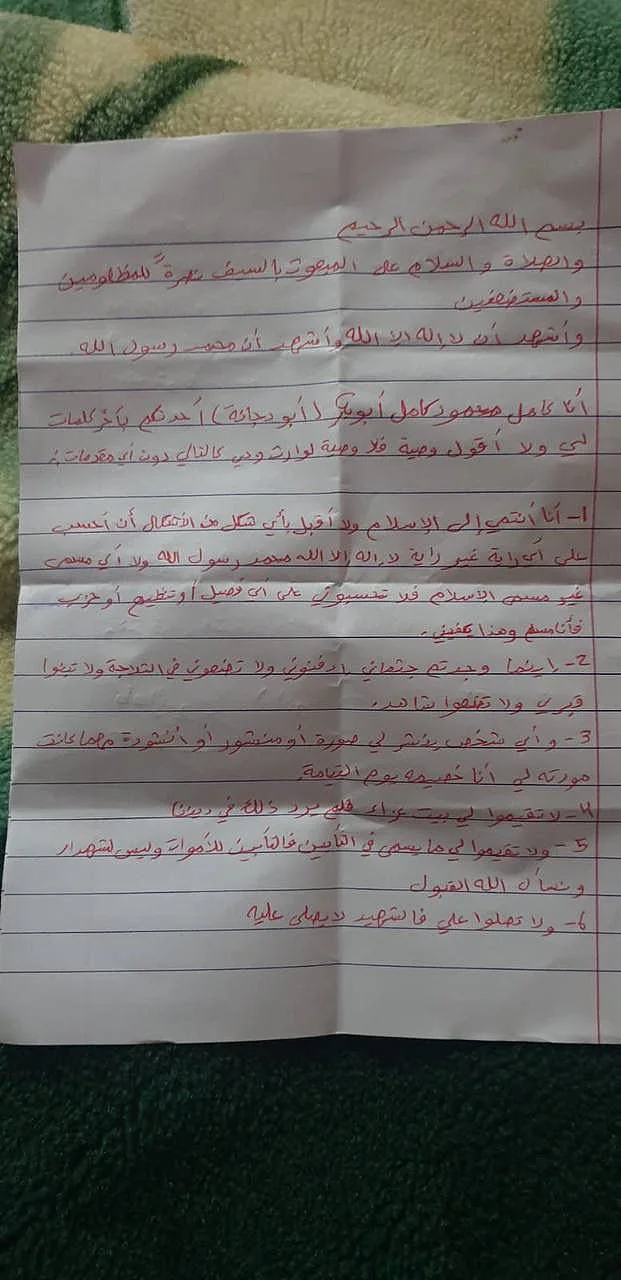 بسم الله الرحمن الرحيم
والصلاة والسلام على المبعوث بالسيف نصرةً للمظلومين
والمستضعفين
وأشهد أن لا إله إلا الله وأشهد أن محمد رسول الله
أنا كامل محمود كامل أبوبكر (أبو دجانة) أحدثكم بآخر كلمات
لي ولا أقول وصية فلا وصية لوارث وهي كالتالي دون أي مقدمات :
1- أنا أنتمي إلى الإسلام ولا أقبل بأي شكل من الأشكال أن أحسب
على أي راية غير راية لا إله إلا الله محمد رسول الله ولا أي مسمى
غير مسمى الاسلام فلا تحسبوني على أي فصيل أو تنظيم أو حزب
فأنا مسلم وهذا يكفيني.
2- إينما وجدتم جثماني ادفنوني ولا تضعوني في الثلاجة ولا تبنوا
قبري ولا تضعوا شاهد.
3- وأي شخص ينشر لي صورة أو منشور أو أنشودة مهما كانت
مورته لي أنا خصيمه يوم القيامة.
4- لا تقيموا لي بيت عزاء فلم يرد ذلك في ديننا
5- ولا تقيموا لي ما يسمى في التأبين فالتأبين للأموات وليس للشهداء
ونسأل الله القبول
6- ولا تصلوا علي فالشهيد لا يصلى عليه